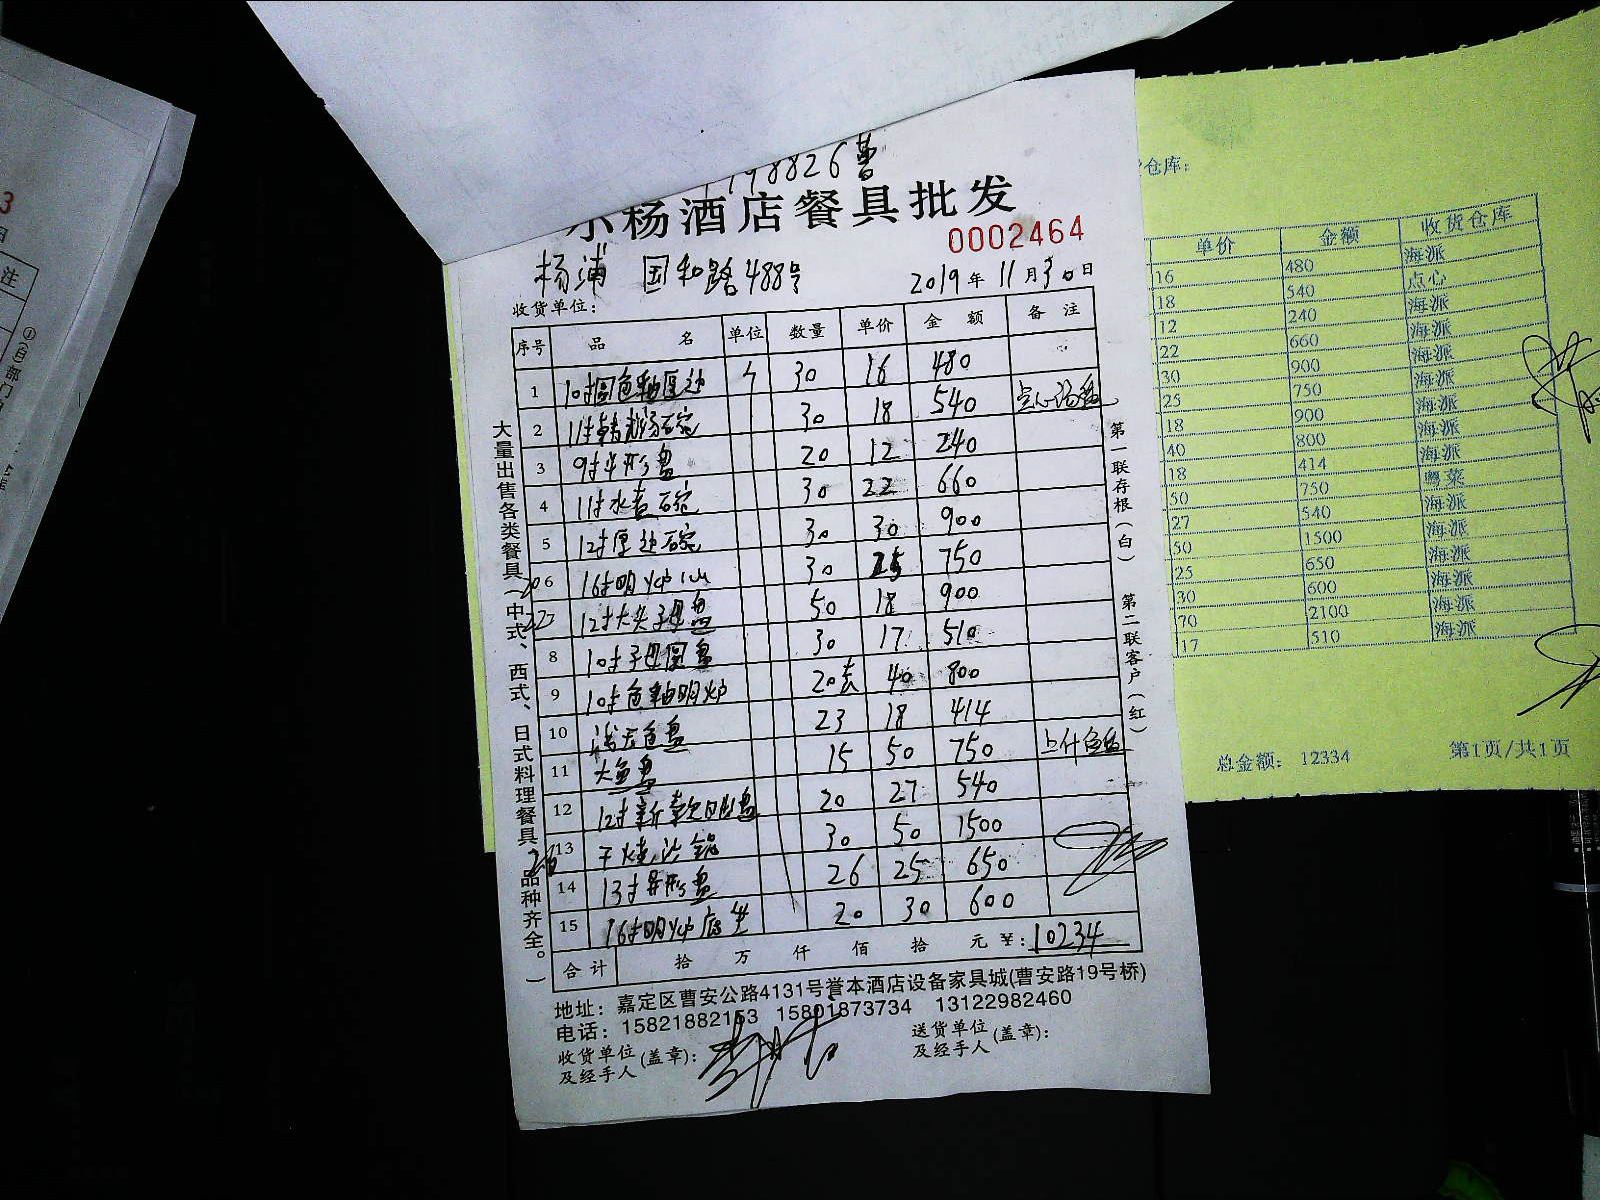 98826曹
小杨酒店餐具批发
0002464
杨浦 国和路488号
2019年11月30日
收货单位：
序号 品 名 单位 数量 单价 金 额 备 注
1 10寸圆色釉厚边 个 30 16 480
2 11寸韩式汤碗 30 18 540
3 9寸半形盘 20 12 240
4 11寸水煮碗 30 22 660
5 12寸厚边碗 30 30 900
6 16寸明炉 30 25 750
12寸大头子母盘 50 18 900
8 10寸子母圆盘 30 17 510
9 10寸色釉明炉 20套 40 800
10 鱼盘 23 18 414
11 大鱼盘 15 50 750
12 12寸新款 盘 20 27 540
13 干烧 锅 30 50 1500
14 13寸异形盘 26 25 650
15 16寸明炉底座 20 30 600
合计 拾 万 仟 佰 拾 元 ¥：10234
地址：嘉定区曹安公路4131号誉本酒店设备家具城(曹安路19号桥)
电话：15821882153 15801873734 13122982460
收货单位
及经手人
(盖章)：
送货单位
及经手人
(盖章)：
大量出售各类餐具(中式、西式、日式料理餐具品种齐全。)
第一联存根(白) 第二联客户(红)
仓库：
单价 金额 收货仓库
16 480 海派
18 540 点心
12 240 海派
22 660 海派
30 900 海派
25 750 海派
18 900 海派
40 800 海派
18 414 海派
50 750 粤菜
27 540 海派
50 1500 海派
25 650 海派
30 600 海派
70 2100 海派
17 510 海派
总金额： 12334
第1页/共1页
3
注